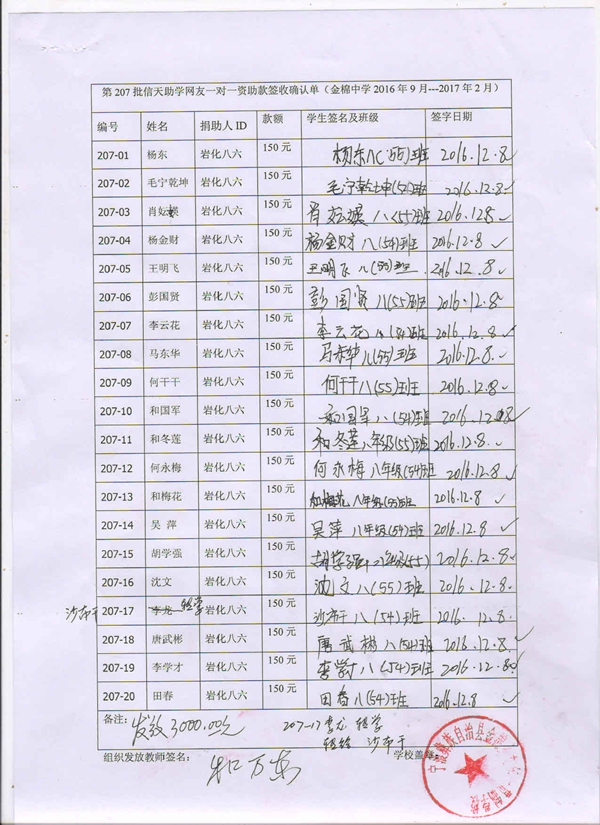 第207批信天助学网友一对一资助款签收确认单（金棉中学2016年9月---2017年2月）
编号 姓名 捐助人ID 款额 学生签名及班级 签字日期
207-01 杨东 岩化八六 150元 杨东八(55)班 2016.12.8
207-02 毛宁乾坤 岩化八六 150元 毛宁乾坤(52)班 2016.12.8.
207-03 肖妘 岩化八六 150元 肖妘 八(55)班 2016.12.8
207-04 杨金财 岩化八六 150元 杨金财 八(54)班 2016.12.8
207-05 王明飞 岩化八六 150元 王明飞 八(55)班 2016.12.8
207-06 彭国贤 岩化八六 150元 彭国贤 八(55)班 2016.12.8
207-07 李云花 岩化八六 150元 李云花 八(54)班 2016.12.8
207-08 马东华 岩化八六 150元 马东华 八(55)班 2016.12.8.
207-09 何干干 岩化八六 150元 何干干 八(55)班 2016.12.8.
207-10 和国军 岩化八六 150元 和国军 八(54)班 2016.12.8
207-11 和冬莲 岩化八六 150元 和冬莲 八年级(55)班 2016.12.8.
207-12 何永梅 岩化八六 150元 何永梅 八年级(54)班 2016.12.8
207-13 和梅花 岩化八六 150元 和梅花 八年级(55)班 2016.12.8
207-14 吴 萍 岩化八六 150元 吴萍 八年级(54)班 2016.12.8.
207-15 胡学强 岩化八六 150元 胡学强 (55) 2016.12.8
207-16 沈文 岩化八六 150元 沈文 八(55)班 2016.12.8
沙布干 207-17 李龙 转学 岩化八六 150元 沙布干 八(54)班 2016.12.8
207-18 唐武彬 岩化八六 150元 唐武彬 八(54)班 2016.12.8
207-19 李学才 岩化八六 150元 李学才 八(54)班 2016.12.8
207-20 田春 岩化八六 150元 田春 八(54)班 2016.12.8
备注： 发放3000.00元 207-17李龙 转学
转给 沙布干
组织发放教师签名： 学校盖章：